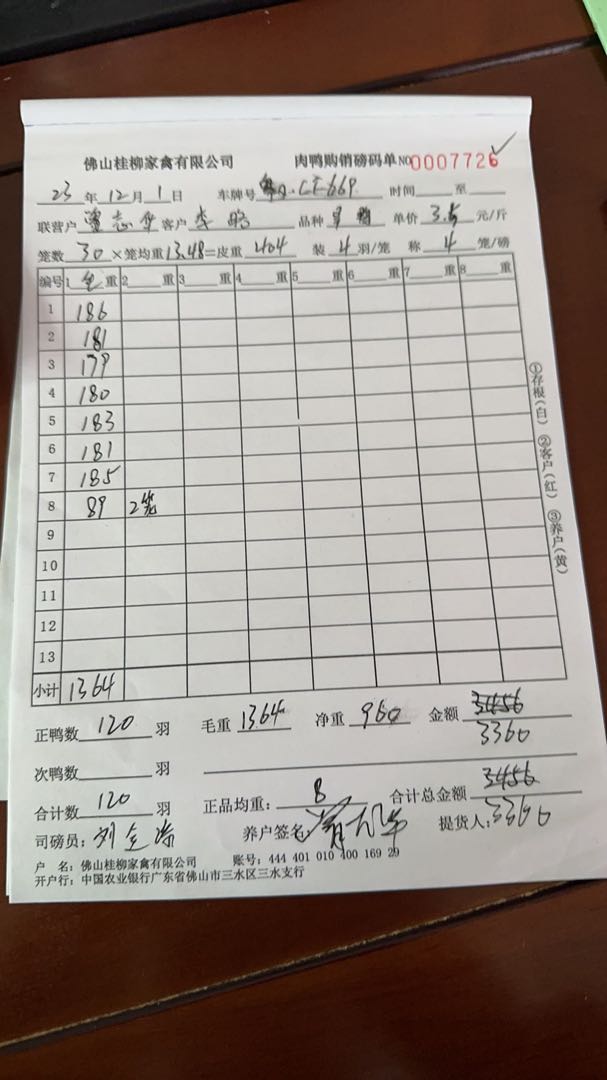 佛山桂柳家禽有限公司 肉鸭购销磅码单 NO 0007726
23年12月1日 车牌号 CF669 时间 至
联营户 志 客户 李 品种 单价 3.5 元/斤
笼数 30 ×笼均重 13.48=皮重 404 装 4 羽/笼 称 4 笼/磅
编号 1 重 2 重 3 重 4 重 5 重 6 重 7 重 8 重
1 186
2 181
3 179
4 180
5 183
6 181
7 185
8 89 2笼
9
10
11
12
13
小计 1364
①存根(白) ②客户(红) ③养户(黄)
正鸭数 120 羽 毛重 1364 净重 960 金额 3456
3360
次鸭数 羽
合计数 120 羽 正品均重: 8 合计总金额 3456
司磅员: 刘 养户签名: 提货人: 3360
户 名: 佛山桂柳家禽有限公司 账号: 444 401 010 400 169 29
开户行: 中国农业银行广东省佛山市三水区三水支行